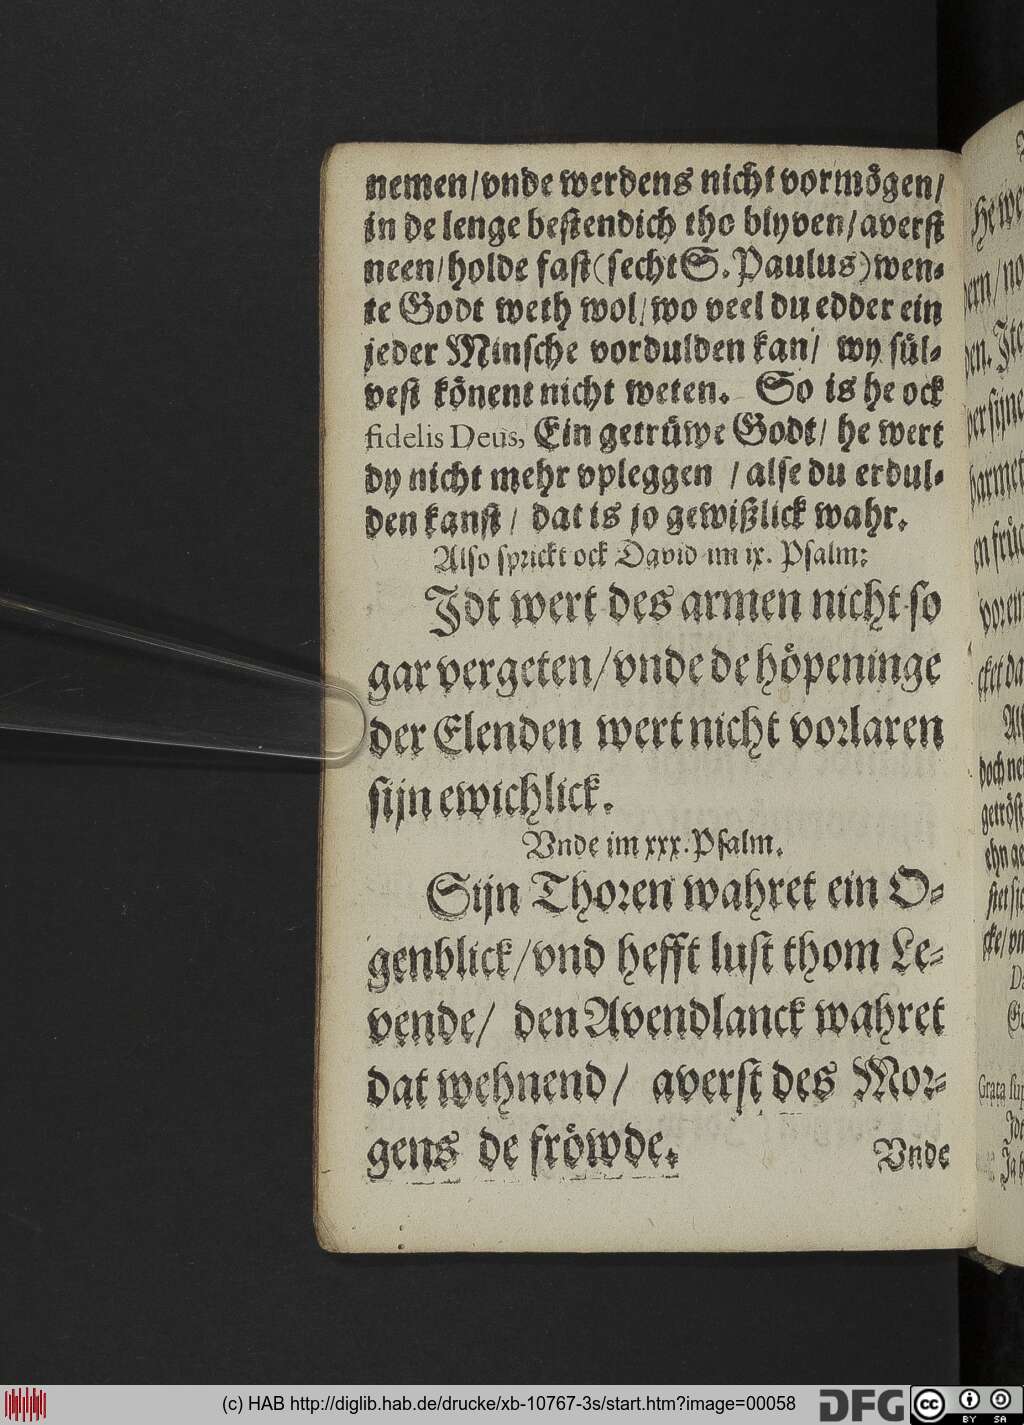 nemen/vnde werdens nicht vormögen/
in de lenge bestendich tho blyven/averst
neen/holde fast(secht S. Paulus)wen-
te Godt weth wol/wo veel du edder ein
jeder Minsche vordulden kan/ wy sül-
vest könent nicht weten. So is he ock
fidelis Deus, Ein getrüwe Godt/ he wert
dy nicht mehr vpleggen /alse du erdul-
den kanst/ dat is jo gewißlick wahr.
Also sprickt ock David im ix. Psalm:
Jdt wert des armen nicht so
gar vergeten/vnde de höpeninge
der Elenden wert nicht vorlaren
sijn ewichlick.
Vnde im xxx. Psalm.
Sijn Thoren wahret ein O-
genblick/vnd hefft lust thom Le-
vende/ den Avendlanck wahret
dat wehnend/ averst des Mor-
gens de fröwde.
Vnde
He we
ern/no
den. Jte
ver sijne
harmet
en früc
vorein
cket da
Als
doch ne
getröst
ehn ge
stet sic
cke/vn
Grata sup
Jdt
(c) HAB http://diglib.hab.de/drucke/xb-10767-3s/start.htm?image=00058
DFG
cc
BY
SA